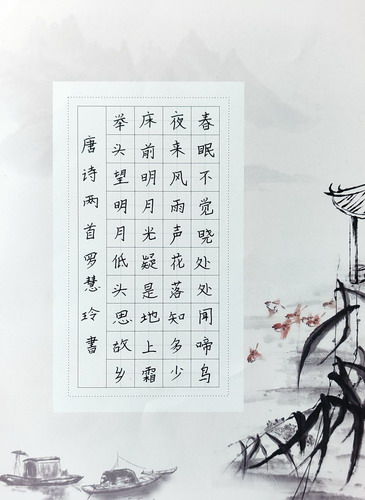 春眠不觉晓处处闻啼鸟
夜来风雨声花落知多少
床前明月光疑是地上霜
举头望明月低头思故乡
唐诗两首罗慧玲書